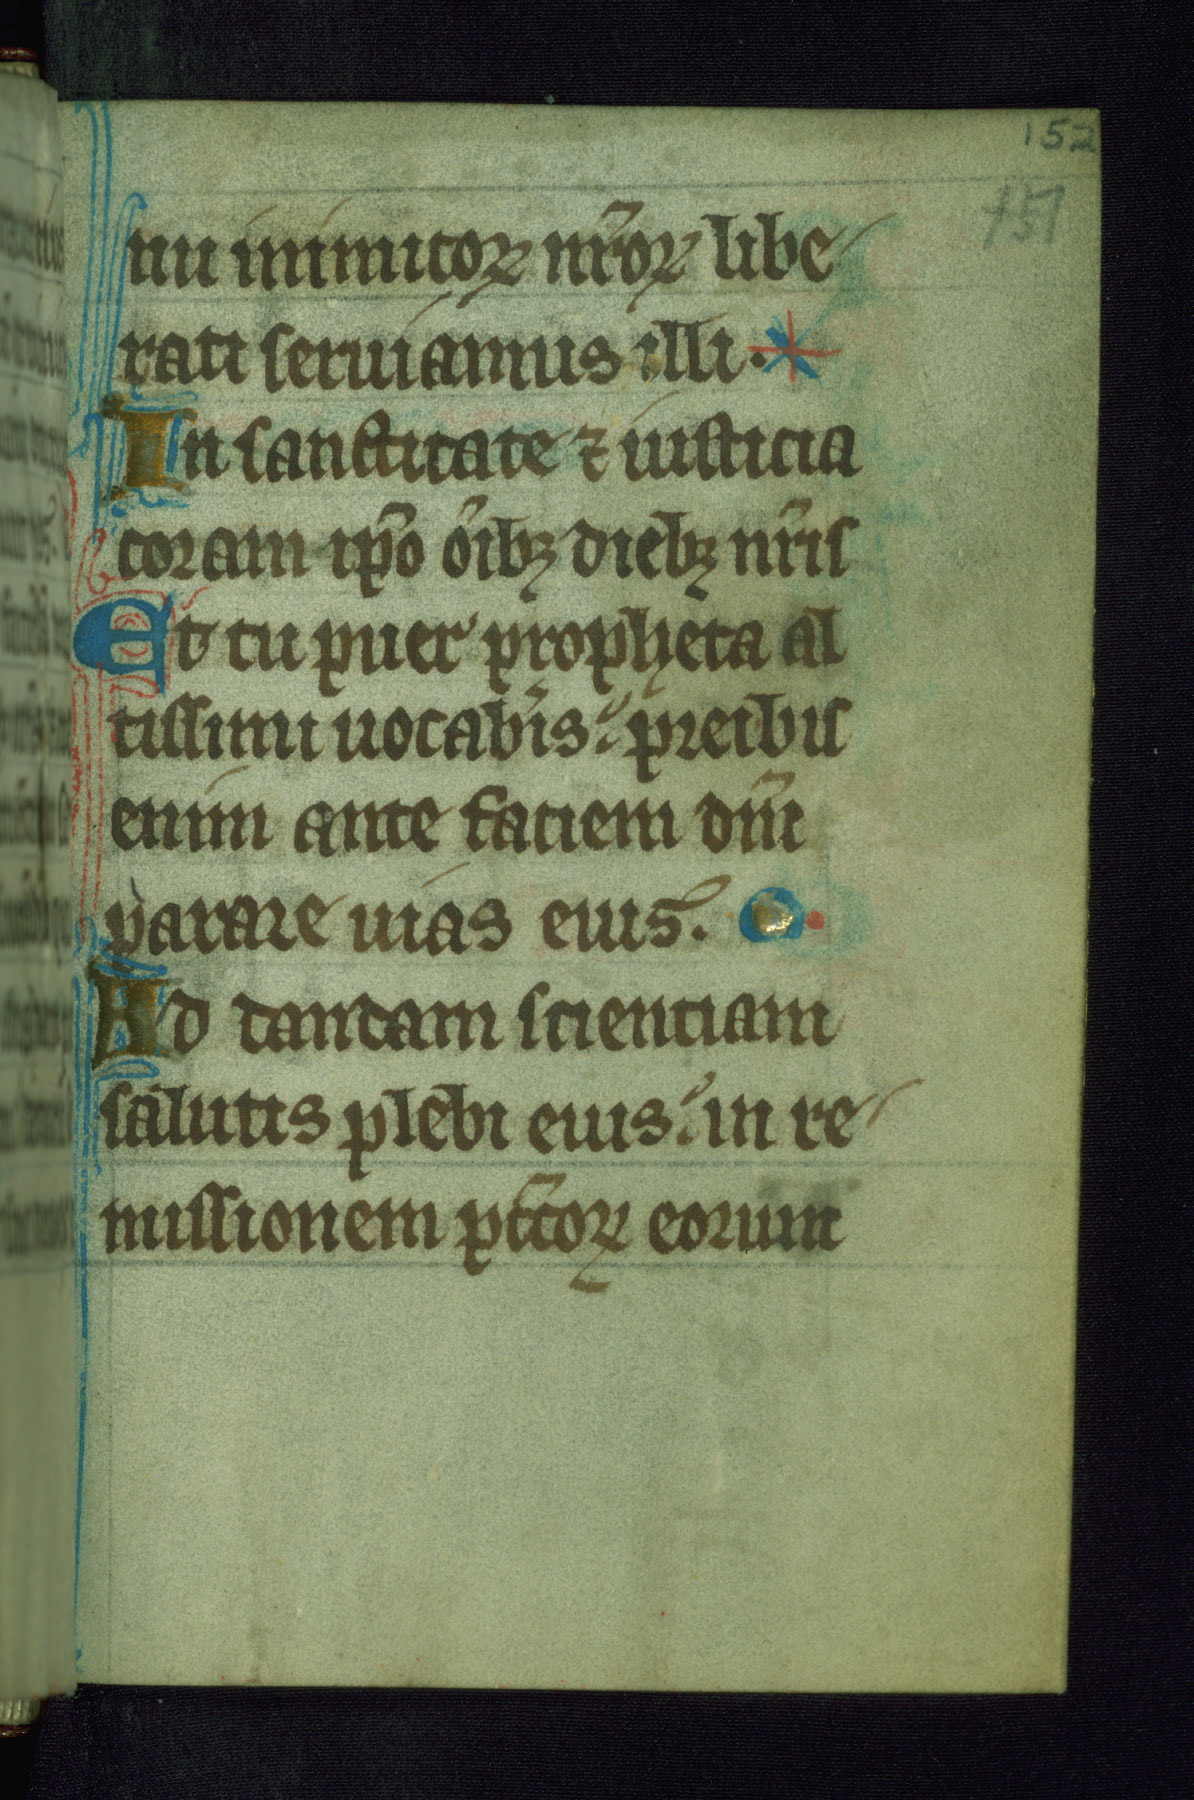 152
151
nu inimicoꝝ nr̄oꝝ libe
rati seruiamus illi.
In sanctitate ⁊ iusticia
coram ip̄o oīb; dieb; nr̄is
Et tu puer propheta al
tissimi uocab̄is: preibis
enim ante faciem dn̄i
parare uias eius.
Ad dandam scientiam
salutis plebi eius: in re
missionem pc̄coꝝ eorum